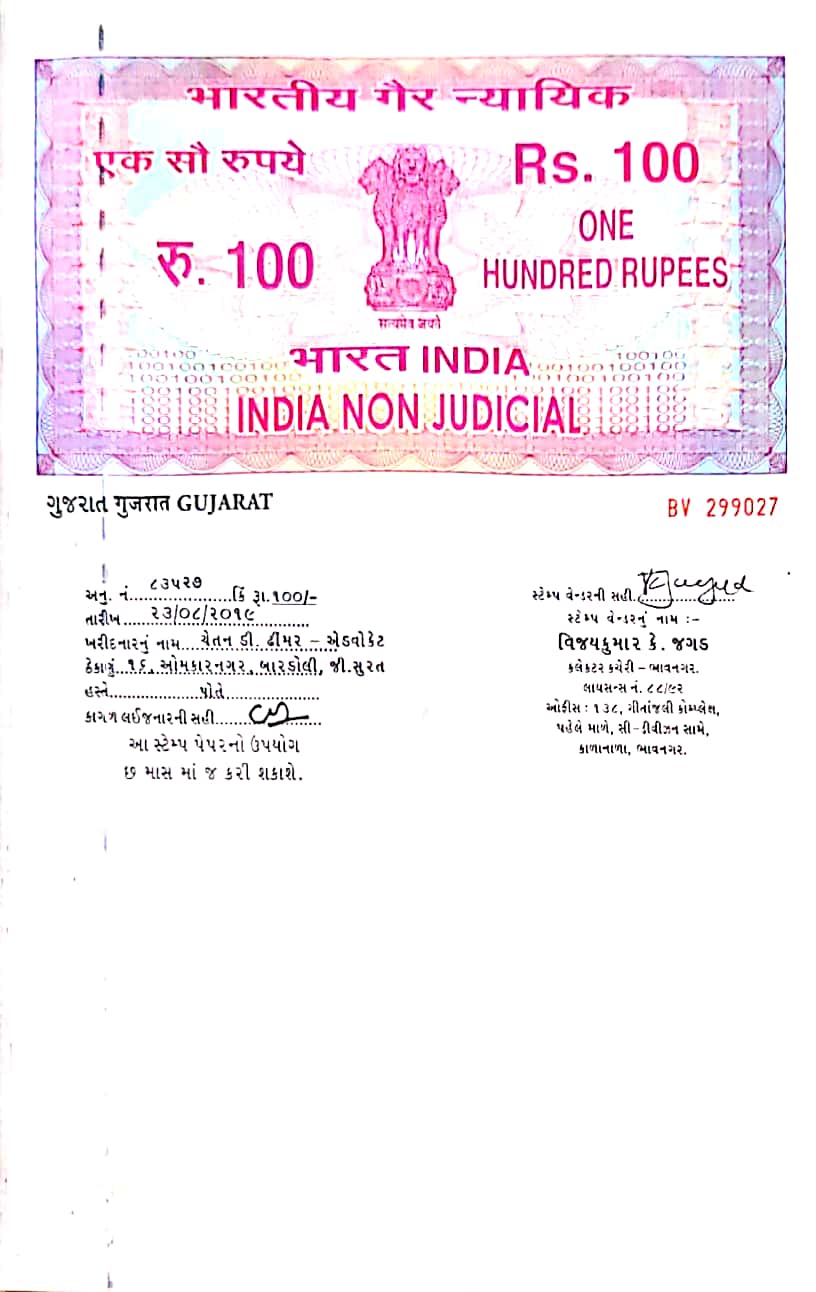 भारतीय गैर न्यायिक
एक सौ रुपये
Rs. 100
रु. 100
ONE
HUNDRED RUPEES
सत्यमेव जयते
भारत INDIA
INDIA NON JUDICIAL
ગુજરાત गुजरात GUJARAT
BV 299027
અનુ. નં. ૮૩૫૨૭ કિં રૂા.૧૦૦/-
તારીખ ૨૩/૦૮/૨૦૧૯
ખરીદનારનું નામ ચેતન ડી. ઢીમર – એડવોકેટ
ઠેકાણું ૧૬, ઓમકારનગર, બારડોલી, જી.સુરત
હસ્તે પોતે
કાગળ લઈજનારની સહી
આ સ્ટેમ્પ પેપરનો ઉપયોગ
છ માસ માં જ કરી શકાશે.
સ્ટેમ્પ વેન્ડરની સહી
સ્ટેમ્પ વેન્ડરનું નામ :–
વિજયકુમાર કે. જગડ
કલેકટર કચેરી – ભાવનગર.
લાયસન્સ નં. ૮૮/૯૨
ઓફીસ : ૧૩૮, ગીતાંજલી કોમ્પ્લેક્ષ,
પહેલે માળે, સી–ડીવીઝન સામે,
કાળાનાળા, ભાવનગર.